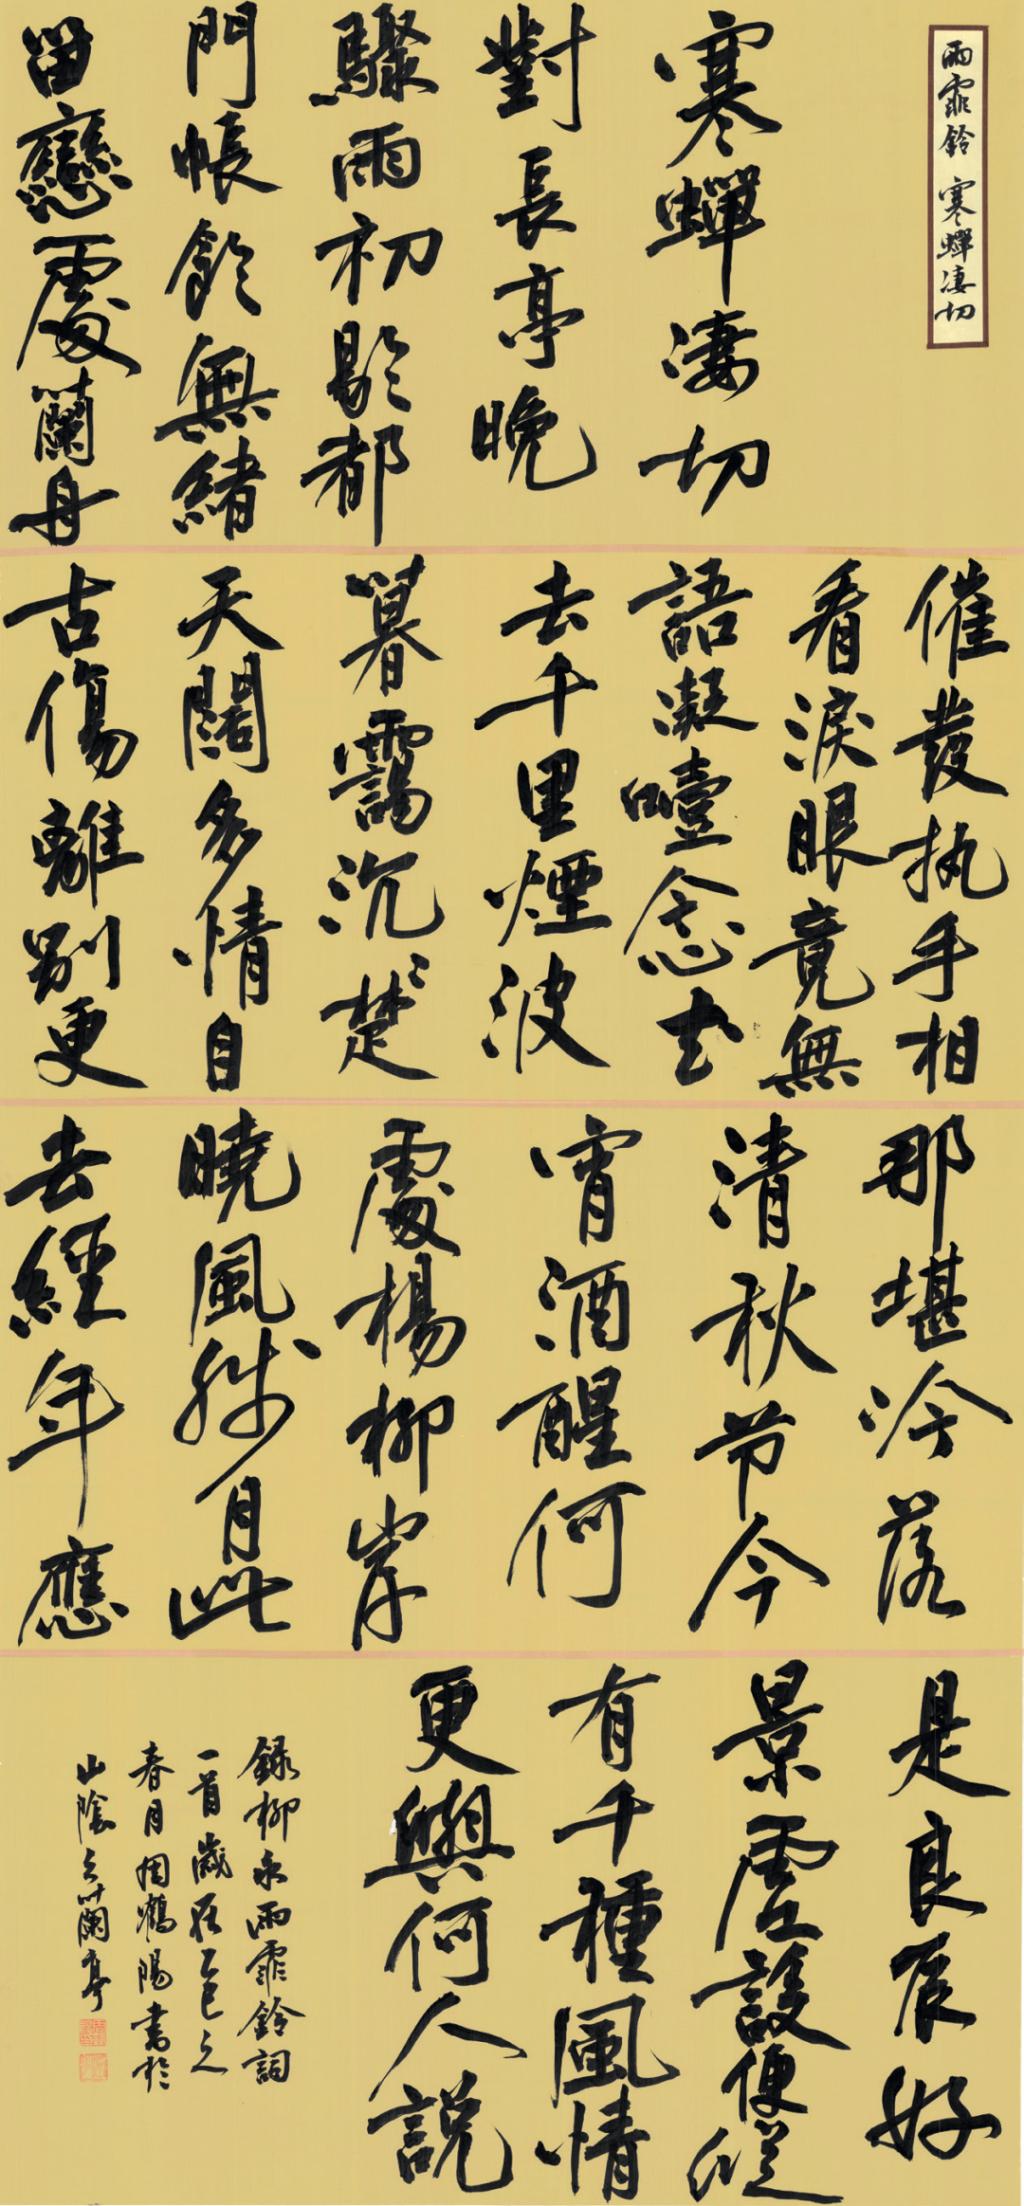 雨霖鈴 寒蟬凄切
寒蟬凄切
對長亭晚
驟雨初歇都
門帳飲無緒
留戀處蘭舟
催發执手相
看淚眼竟無
語凝噎念去
去千里煙波
暮靄沉〻楚
天闊多情自
古傷離別更
那堪冷落
清秋节今
宵酒醒何
處楊柳岸
曉風殘月此
去經年應
是良辰好
景虛設便縱
有千種風情
更與何人説
錄柳永雨霖鈴詞
一首歲在乙巳之
春月周鶴陽書於
山陰之蘭亭